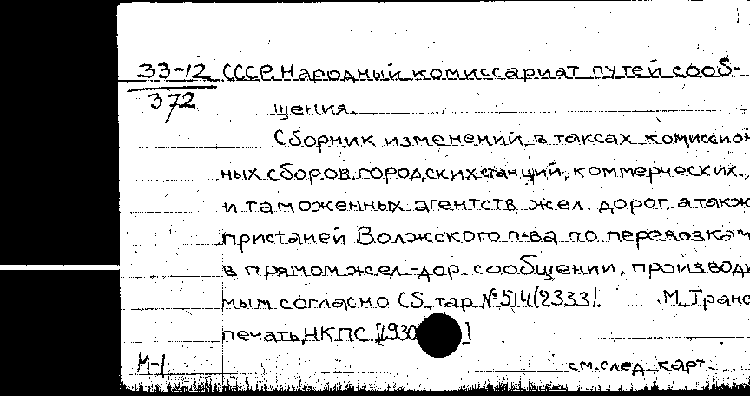 33-12 СССР. Народный комиссариат путей сооб-
372 щения.
Сборник изменений в таксах комиссион
ных сборов городских станций, коммерческих
и таможенных агентств жел. дорог а также
пристаней Волжского п-ва по перевозкам
в прямом жел.-дор. сообщении, производи
мым согласно СS тар № 5/4/2333/. М. Транс
печать НКПС [1930]
М-1 см. след. карт.